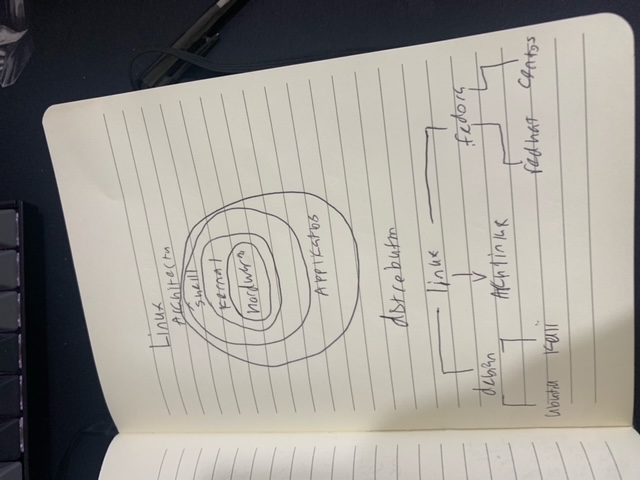 Linux
Architectu
shell
kernal
hardware
Applikatios
distrebutm
linux
debian
Archlinux
fedora
ubuntu
kali
redhat
centos